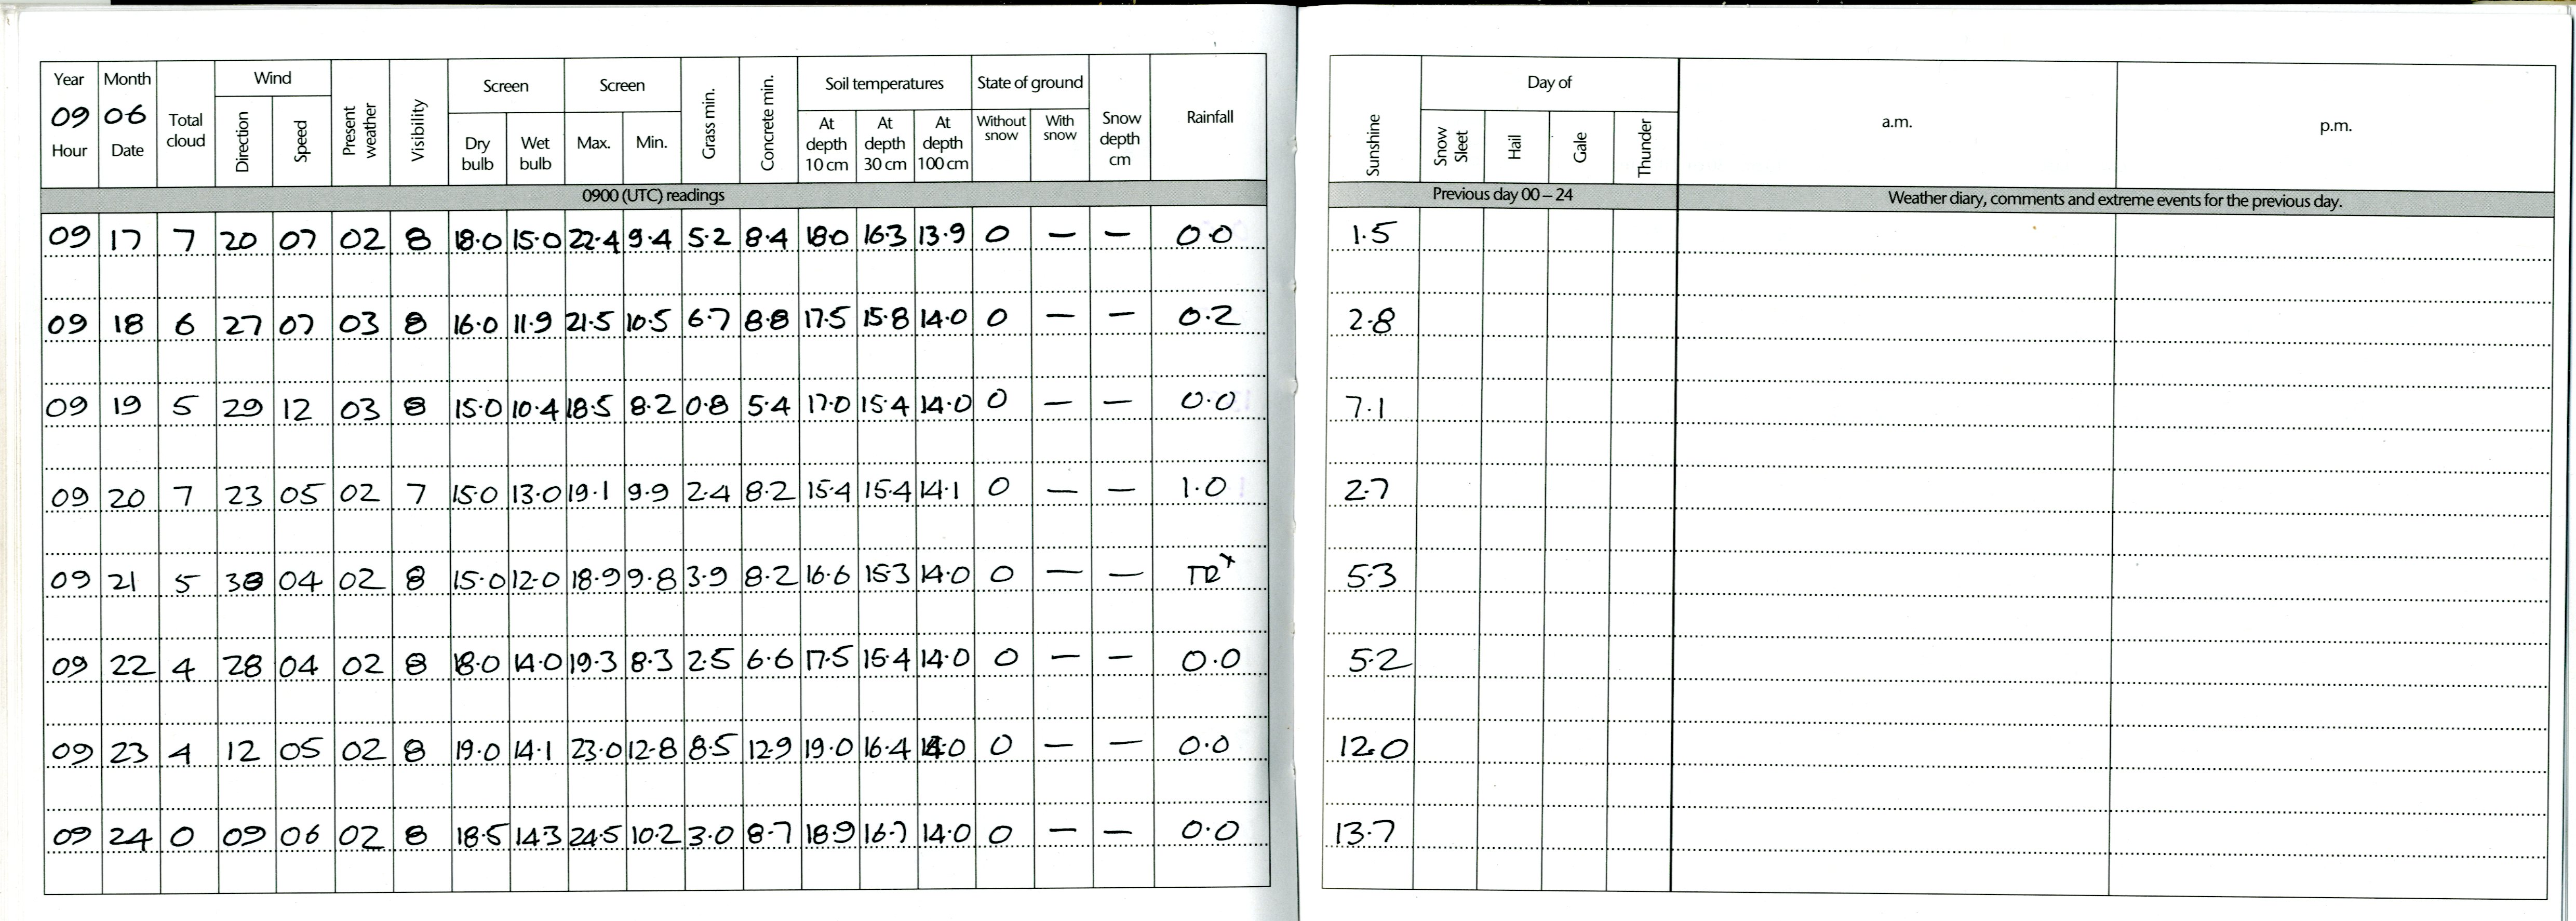 Year Month Total cloud Wind Present weather Visibility Screen Screen Grass min. Concrete min. Soil temperatures State of ground Snow depth cm Rainfall Sunshine Day of a.m. p.m.
09 06 Direction Speed Dry bulb Wet bulb Max. Min. At depth 10 cm At depth 30 cm At depth 100 cm Without snow With snow Snow Sleet Hail Gale Thunder
Hour Date
0900 (UTC) readings Previous day 00 – 24 Weather diary, comments and extreme events for the previous day.
09 17 7 20 07 02 8 18.0 15.0 22.4 9.4 5.2 8.4 18.0 16.3 13.9 0 — — 0.0 1.5
09 18 6 27 07 03 8 16.0 11.9 21.5 10.5 6.7 8.8 17.5 15.8 14.0 0 — — 0.2 2.8
09 19 5 29 12 03 8 15.0 10.4 18.5 8.2 0.8 5.4 17.0 15.4 14.0 0 — — 0.0 7.1
09 20 7 23 05 02 7 15.0 13.0 19.1 9.9 2.4 8.2 15.4 15.4 14.1 0 — — 1.0 2.7
09 21 5 04 02 8 15.0 12.0 18.9 9.8 3.9 8.2 16.6 15.3 14.0 0 — — TR x 5.3
09 22 4 28 04 02 8 18.0 14.0 19.3 8.3 2.5 6.6 17.5 15.4 14.0 0 — — 0.0 5.2
09 23 4 12 05 02 8 19.0 14.1 23.0 12.8 8.5 12.9 19.0 16.4 14.0 0 — — 0.0 12.0
09 24 0 09 06 02 8 18.5 14.3 24.5 10.2 3.0 8.7 18.9 16.7 14.0 0 — — 0.0 13.7